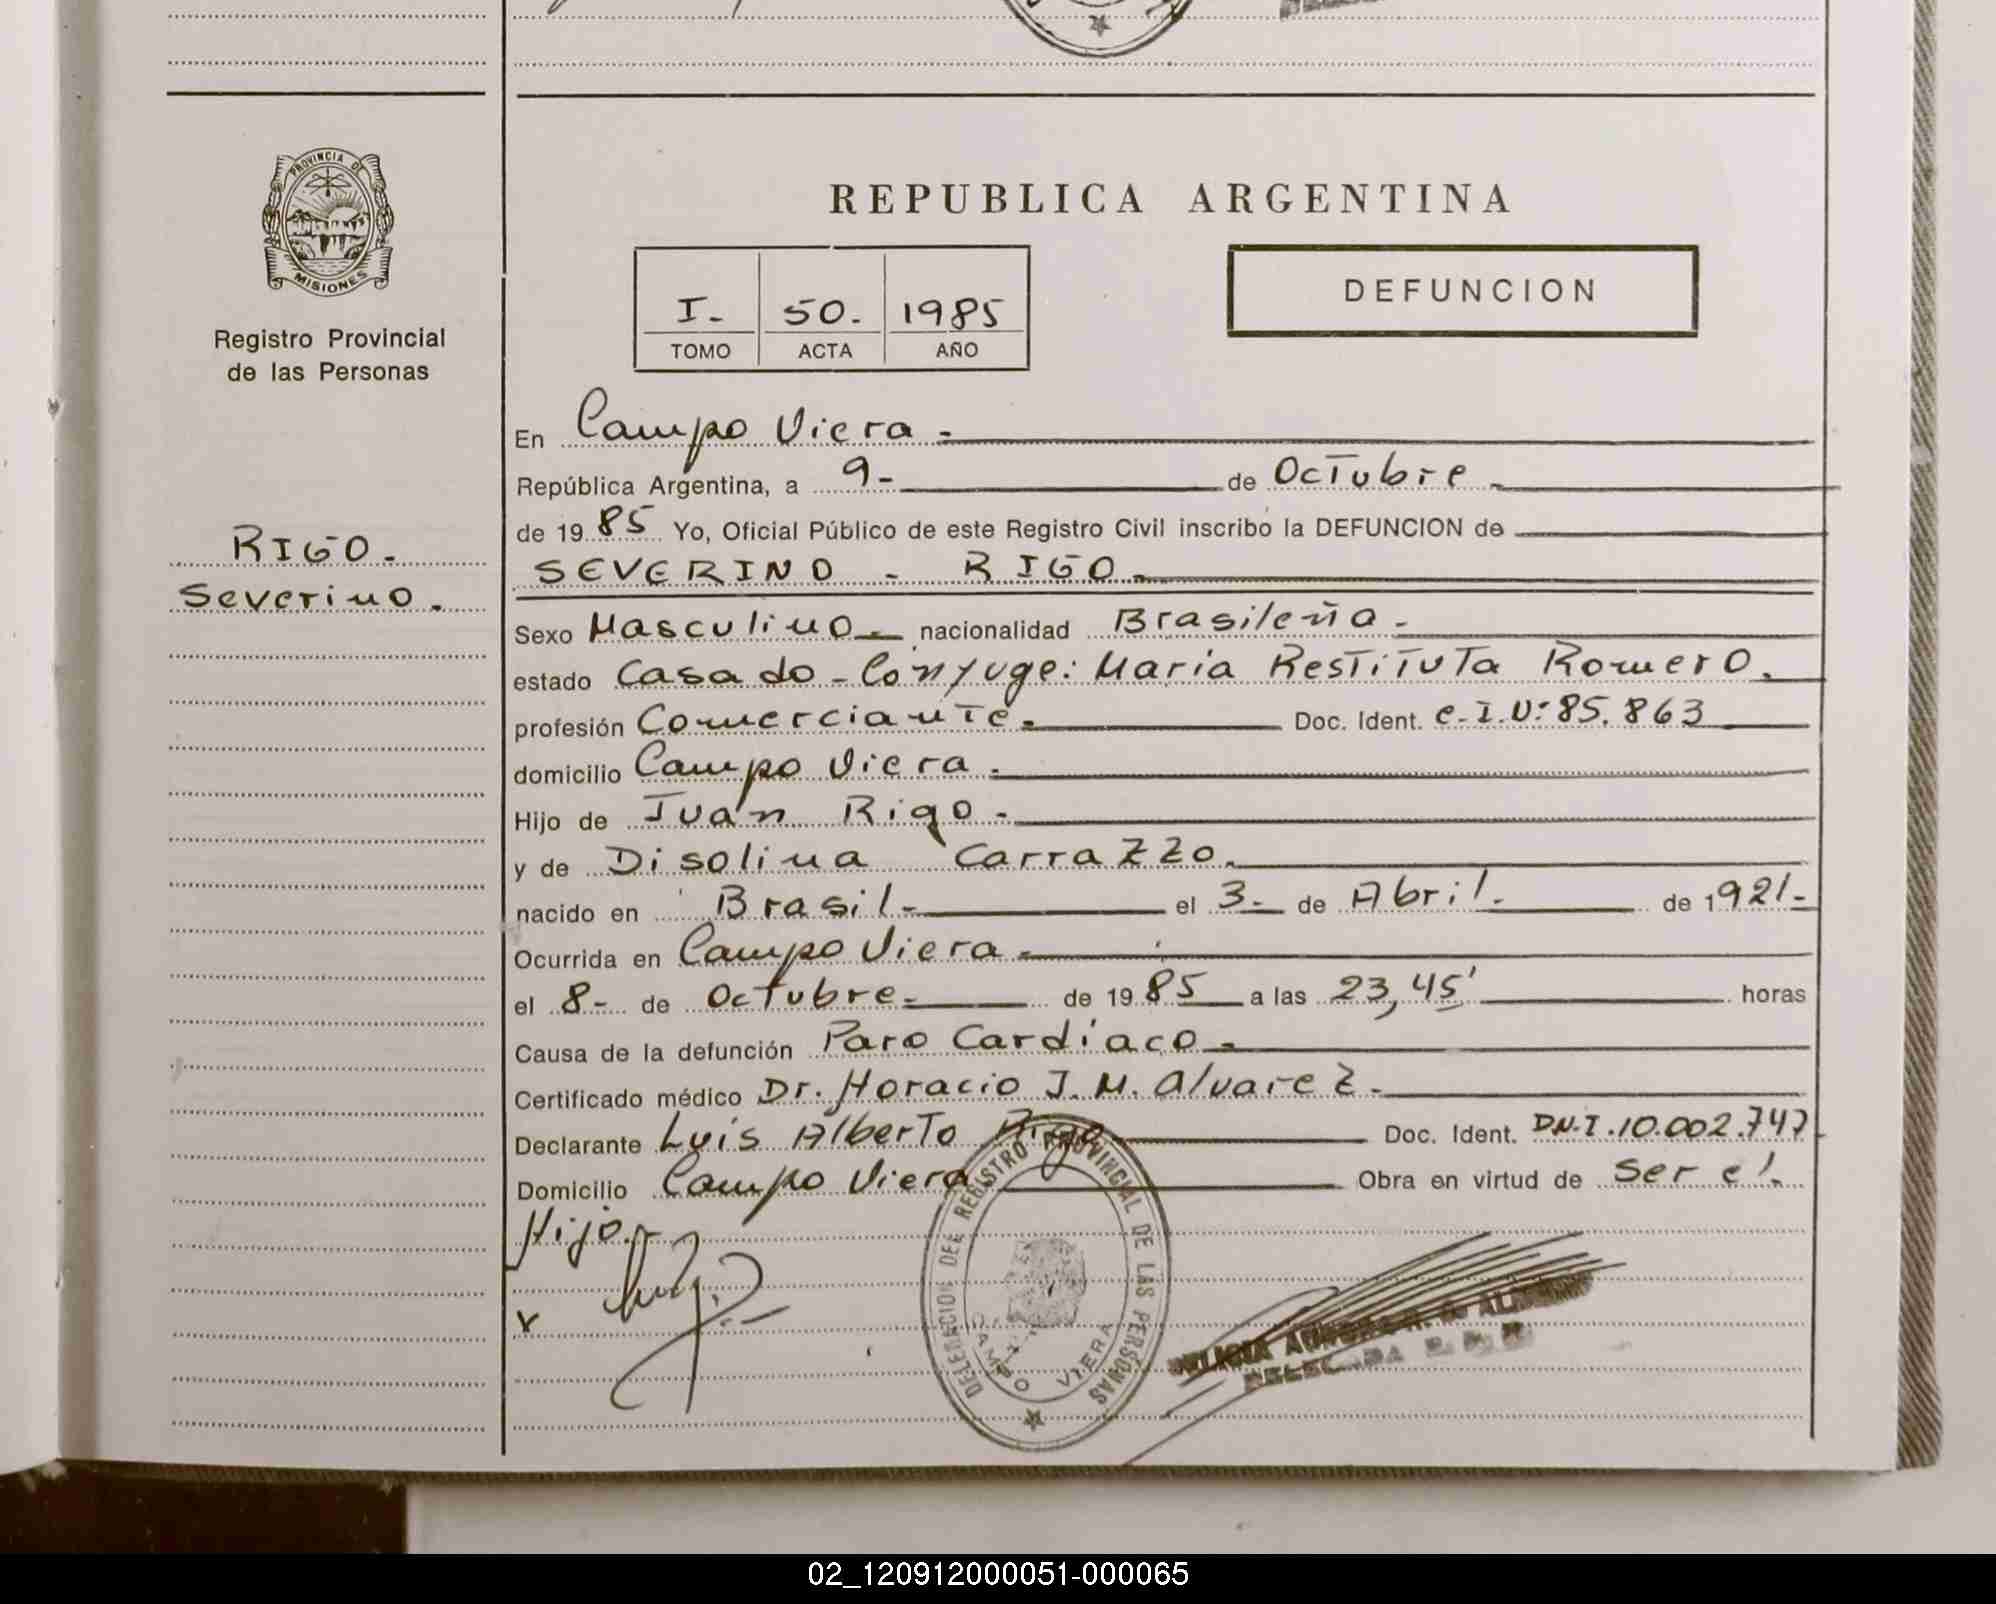 PROVINCIA DE
MISIONES
Registro Provincial
de las Personas
RIGO.-
Severino.
REPUBLICA ARGENTINA
I.- 50.- 1985
TOMO ACTA AÑO
DEFUNCION
En Campo Viera.-
República Argentina, a 9.- de Octubre.-
de 1985 Yo, Oficial Público de este Registro Civil inscribo la DEFUNCION de
SEVERINO - RIGO.-
Sexo Masculino.- nacionalidad Brasileña.-
estado Casado - Cónyuge: Maria Restituta Romero.
profesión Comerciante.- Doc. Ident. C.I.N: 85.863
domicilio Campo Viera.-
Hijo de Juan Rigo.-
y de Disolina Carrazzo.
nacido en Brasil.- el 3.- de Abril.- de 1921.-
Ocurrida en Campo Viera.-
el 8.- de Octubre.- de 1985 a las 23,45' horas
Causa de la defunción Paro Cardíaco.-
Certificado médico Dr. Horacio J. M. Alvarez.-
Declarante Luis Alberto Rigo Doc. Ident. D.N.I. 10.002.747
Domicilio Campo Viera Obra en virtud de Ser el
Hijo.-
DELEGACION DEL REGISTRO PROVINCIAL DE LAS PERSONAS
CAMPO VIERA
02_120912000051-000065